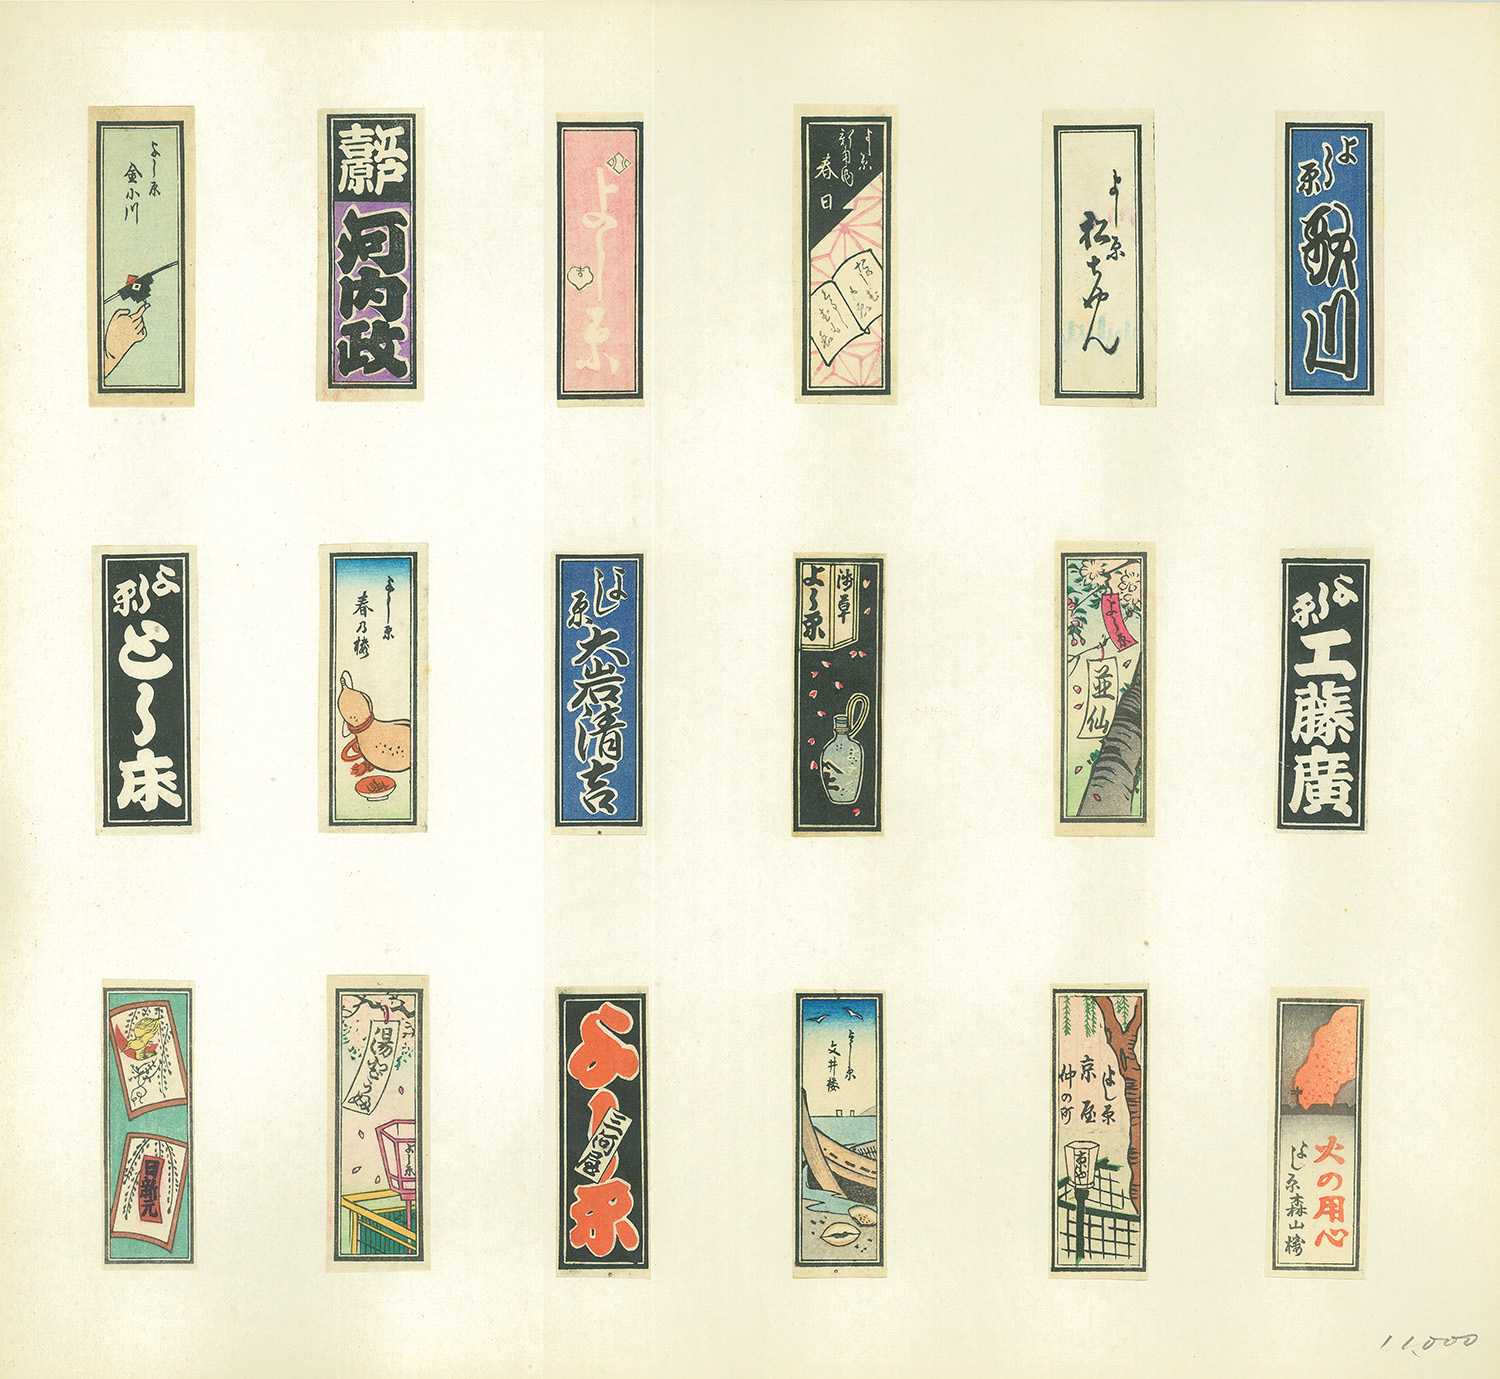 よし原
金小川
江戸
吉原
河内政
よし原
よし原
新角海
春日
よし原
松ちやん
よし原
歌川
よし原
とし床
よし原
春乃楼
よし原
大岩清吉
浅草
よし原
よし原
並仙
よし原
工藤廣
日新元
よし原
よし原
三河屋
よし原
文井楼
よし原
京屋
仲の町
京や
火の用心
よし原森山楼
11,000